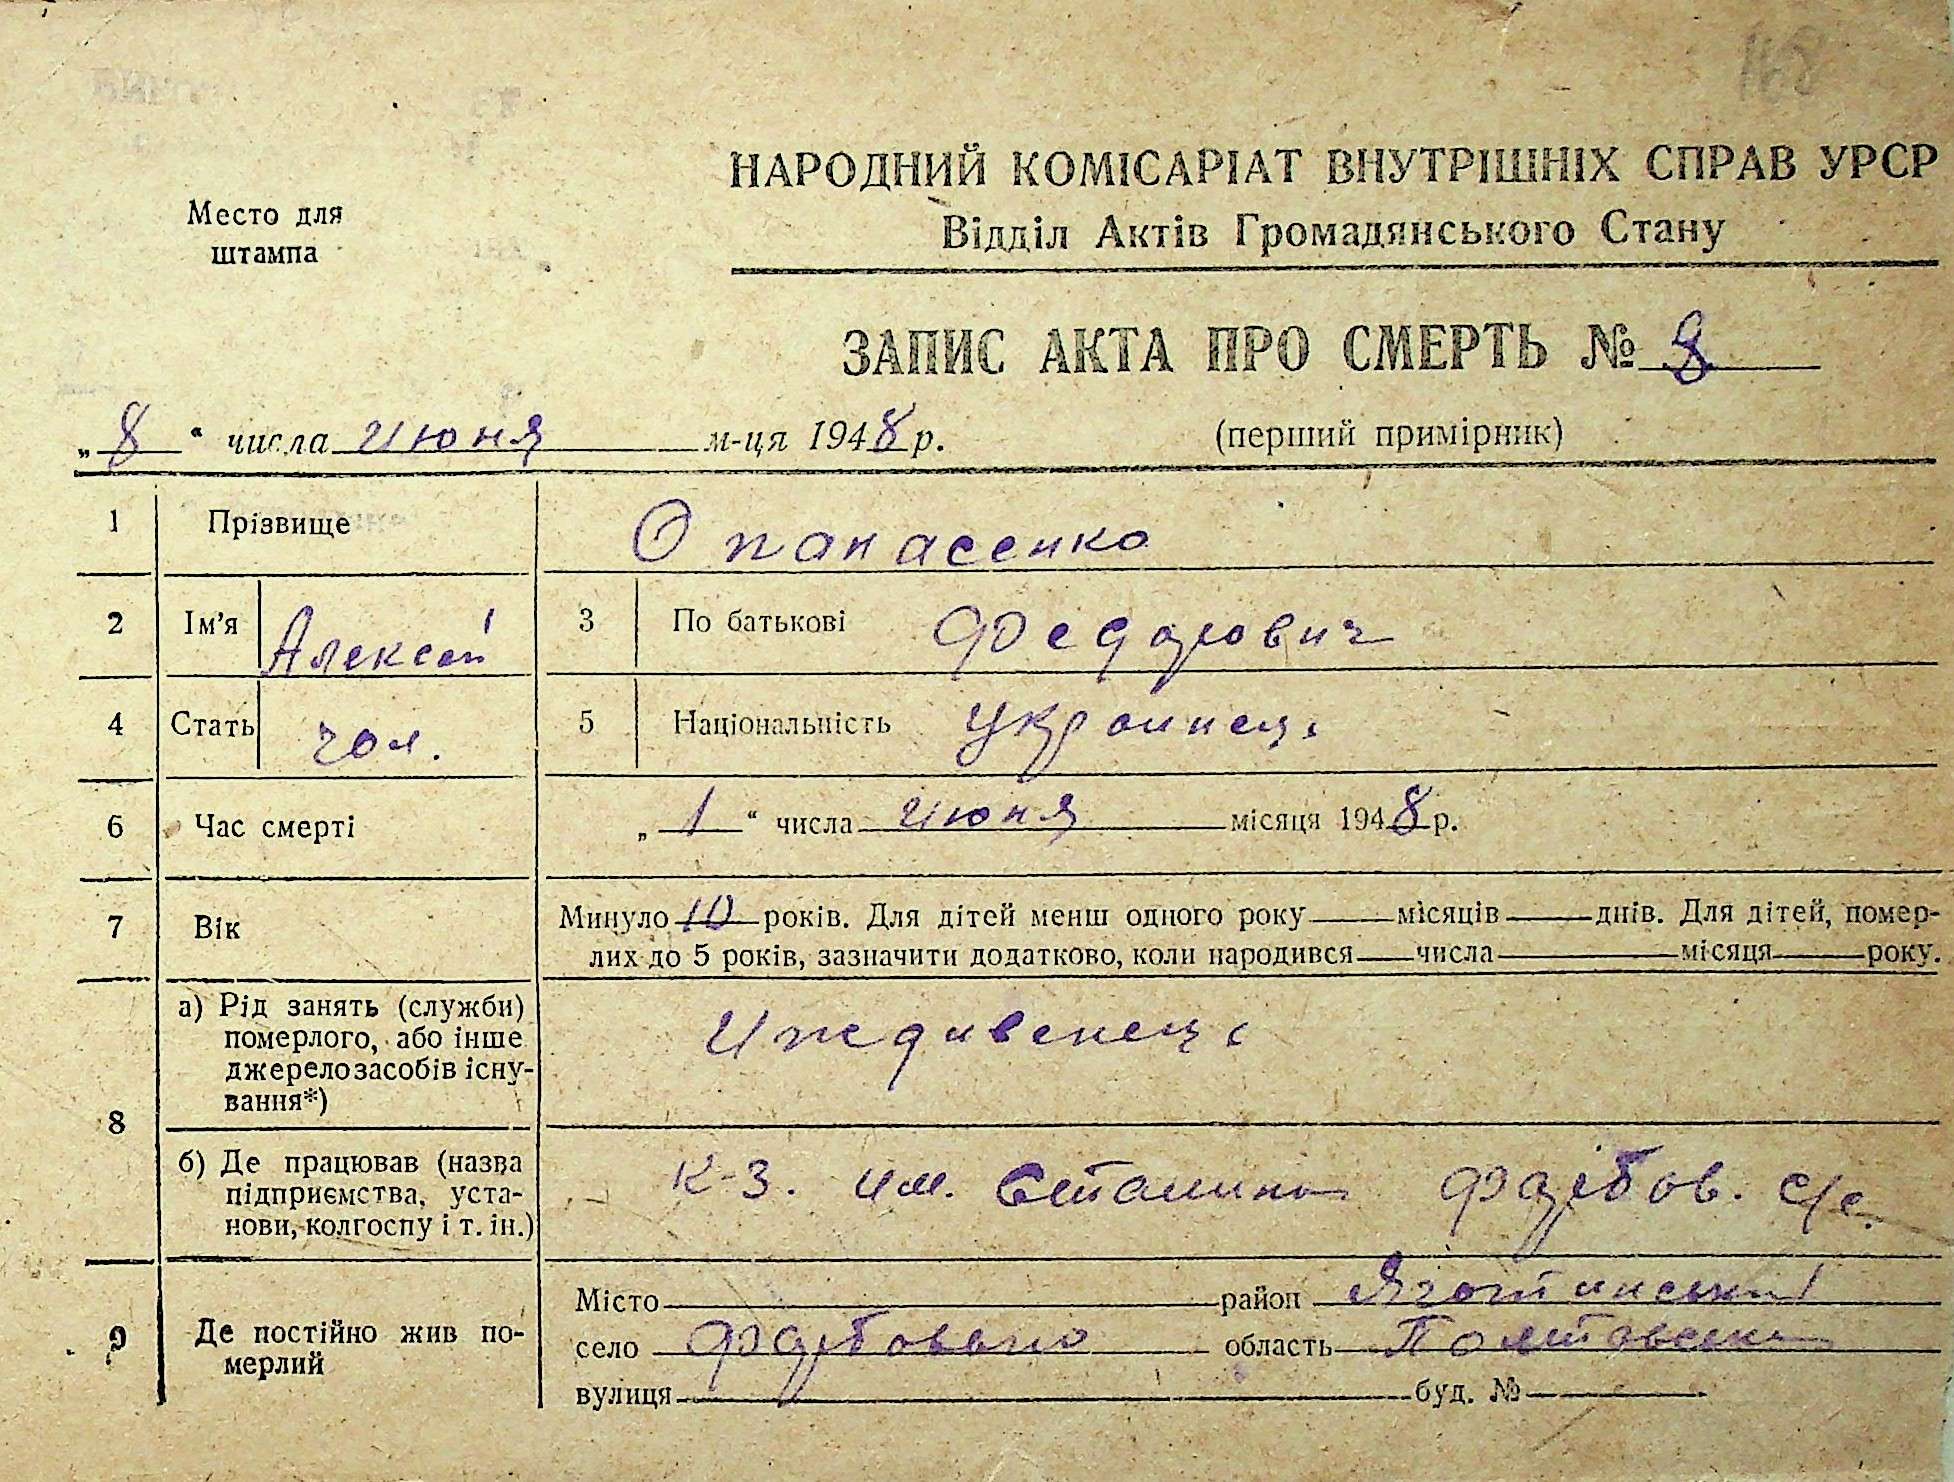 168
НАРОДНИЙ КОМІСАРІАТ ВНУТРІШНІХ СПРАВ УРСР
Відділ Актів Громадянського Стану
Место для
штампа
ЗАПИС АКТА ПРО СМЕРТЬ № 8
„8“ числа июня м-ця 1948 р. (перший примірник)
1 Прізвище Опанасенко
2 Ім'я Алексей 3 По батькові Федорович
4 Стать чол. 5 Національність украинець
6 Час смерті „1“ числа июня місяця 1948 р.
7 Вік Минуло 10 років. Для дітей менш одного року місяців днів. Для дітей, помер-
лих до 5 років, зазначити додатково, коли народився числа місяця року.
8 а) Рід занять (служби)
померлого, або інше
джерело засобів існу-
вання*) Иждивенець
б) Де працював (назва
підприємства, уста-
нови, колгоспу і т. ін.) к-з. им. Сталина с/с.
9 Де постійно жив по-
мерлий
Місто район Яготинський
село область Полтавська
вулиця буд. №